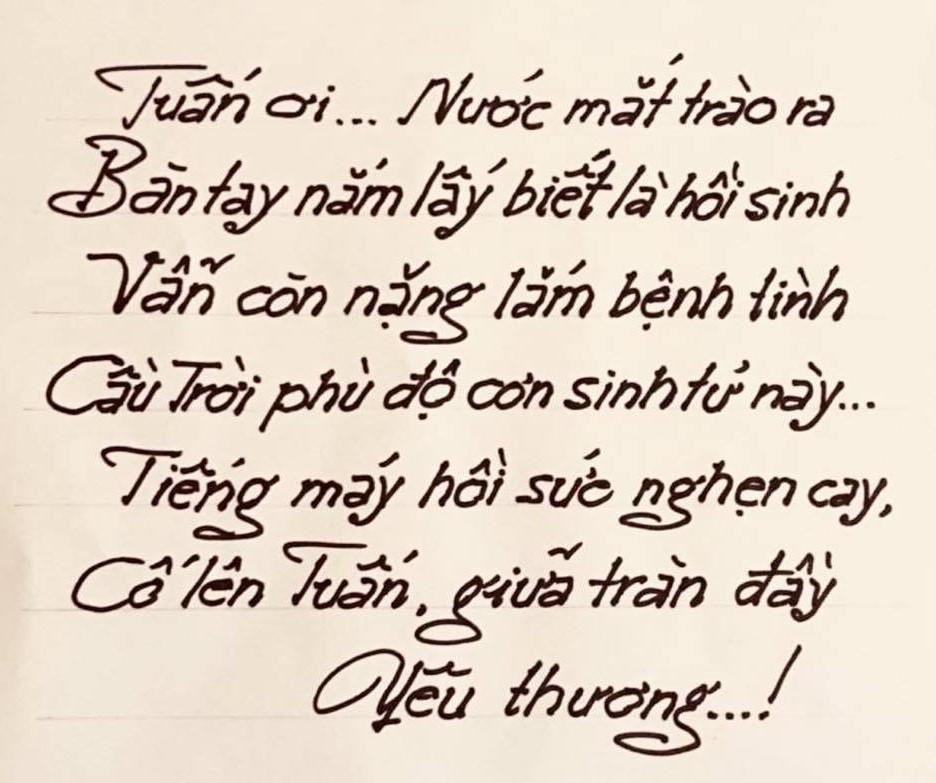 Tuấn ơi... Nước mắt trào ra
Bàn tay nắm lấy biết là hồi sinh
Vẫn còn nặng lắm bệnh tình
Cầu Trời phù độ cơn sinh tử này...
Tiếng máy hồi sức nghẹn cay,
Cố lên Tuấn, giữa tràn đầy
Yêu thương....!